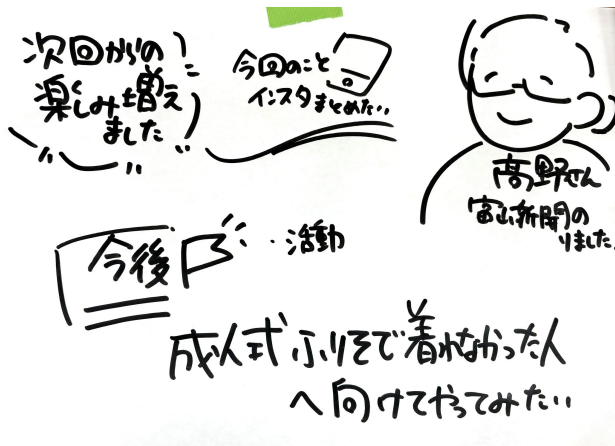 次回からの
楽しみ増え
ました
今回のこと
インスタまとめたい..
高野さん
富山新聞の
りました
今後
..活動
成人式ふりそで着れなかった人
へ向けてやってみたい..